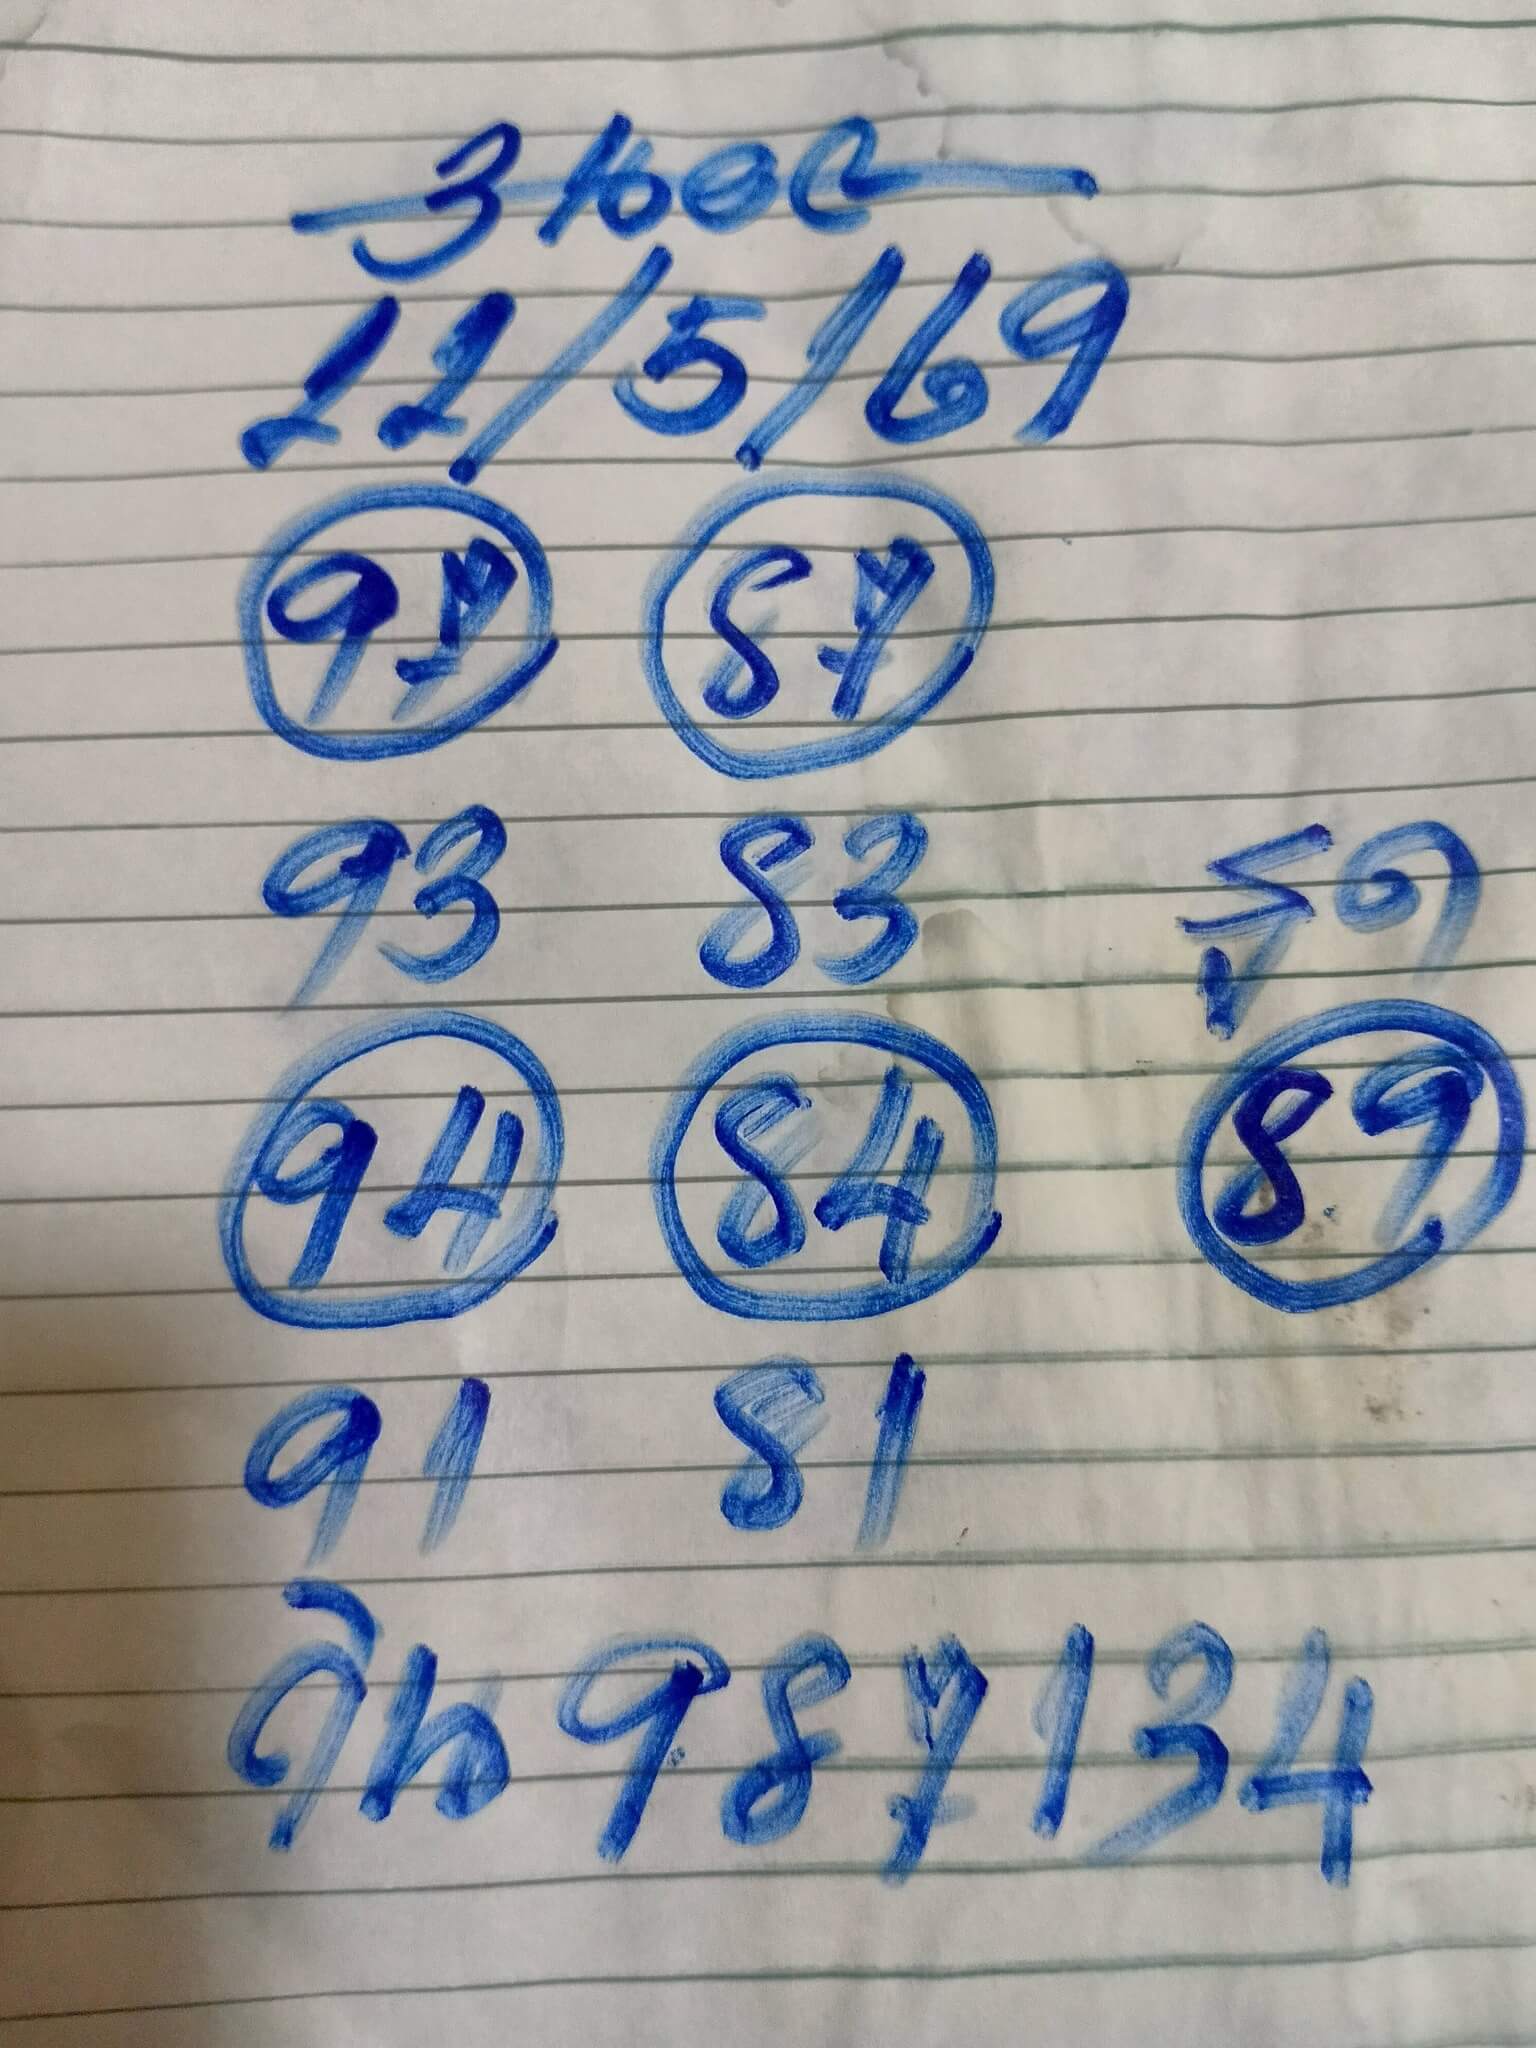 3 นอย
11/5/69
97 87
93 83
รูด
94 84 89
91 81
วิน 987134